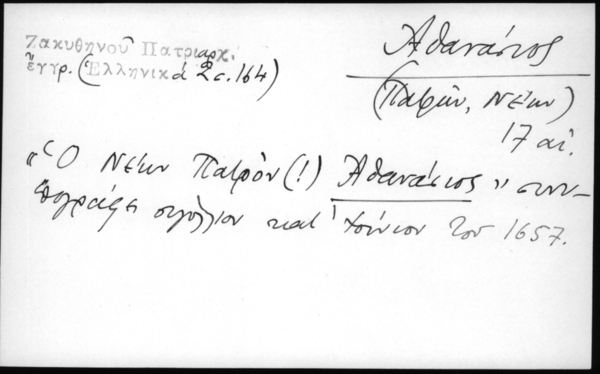 Ζακυθηνοῦ Πατριαρχ.
ἔγγρ. (Ἑλληνικά 2 σ. 164)
Ἀθανάσιος
(Πατρῶν, Νέων)
17 αἰ.
"Ὁ Νέων Πατρὸν (!) Ἀθανάσιος" συνυ-
πογράφει σιγίλλιον κατ' Ἰούνιον τοῦ 1657.